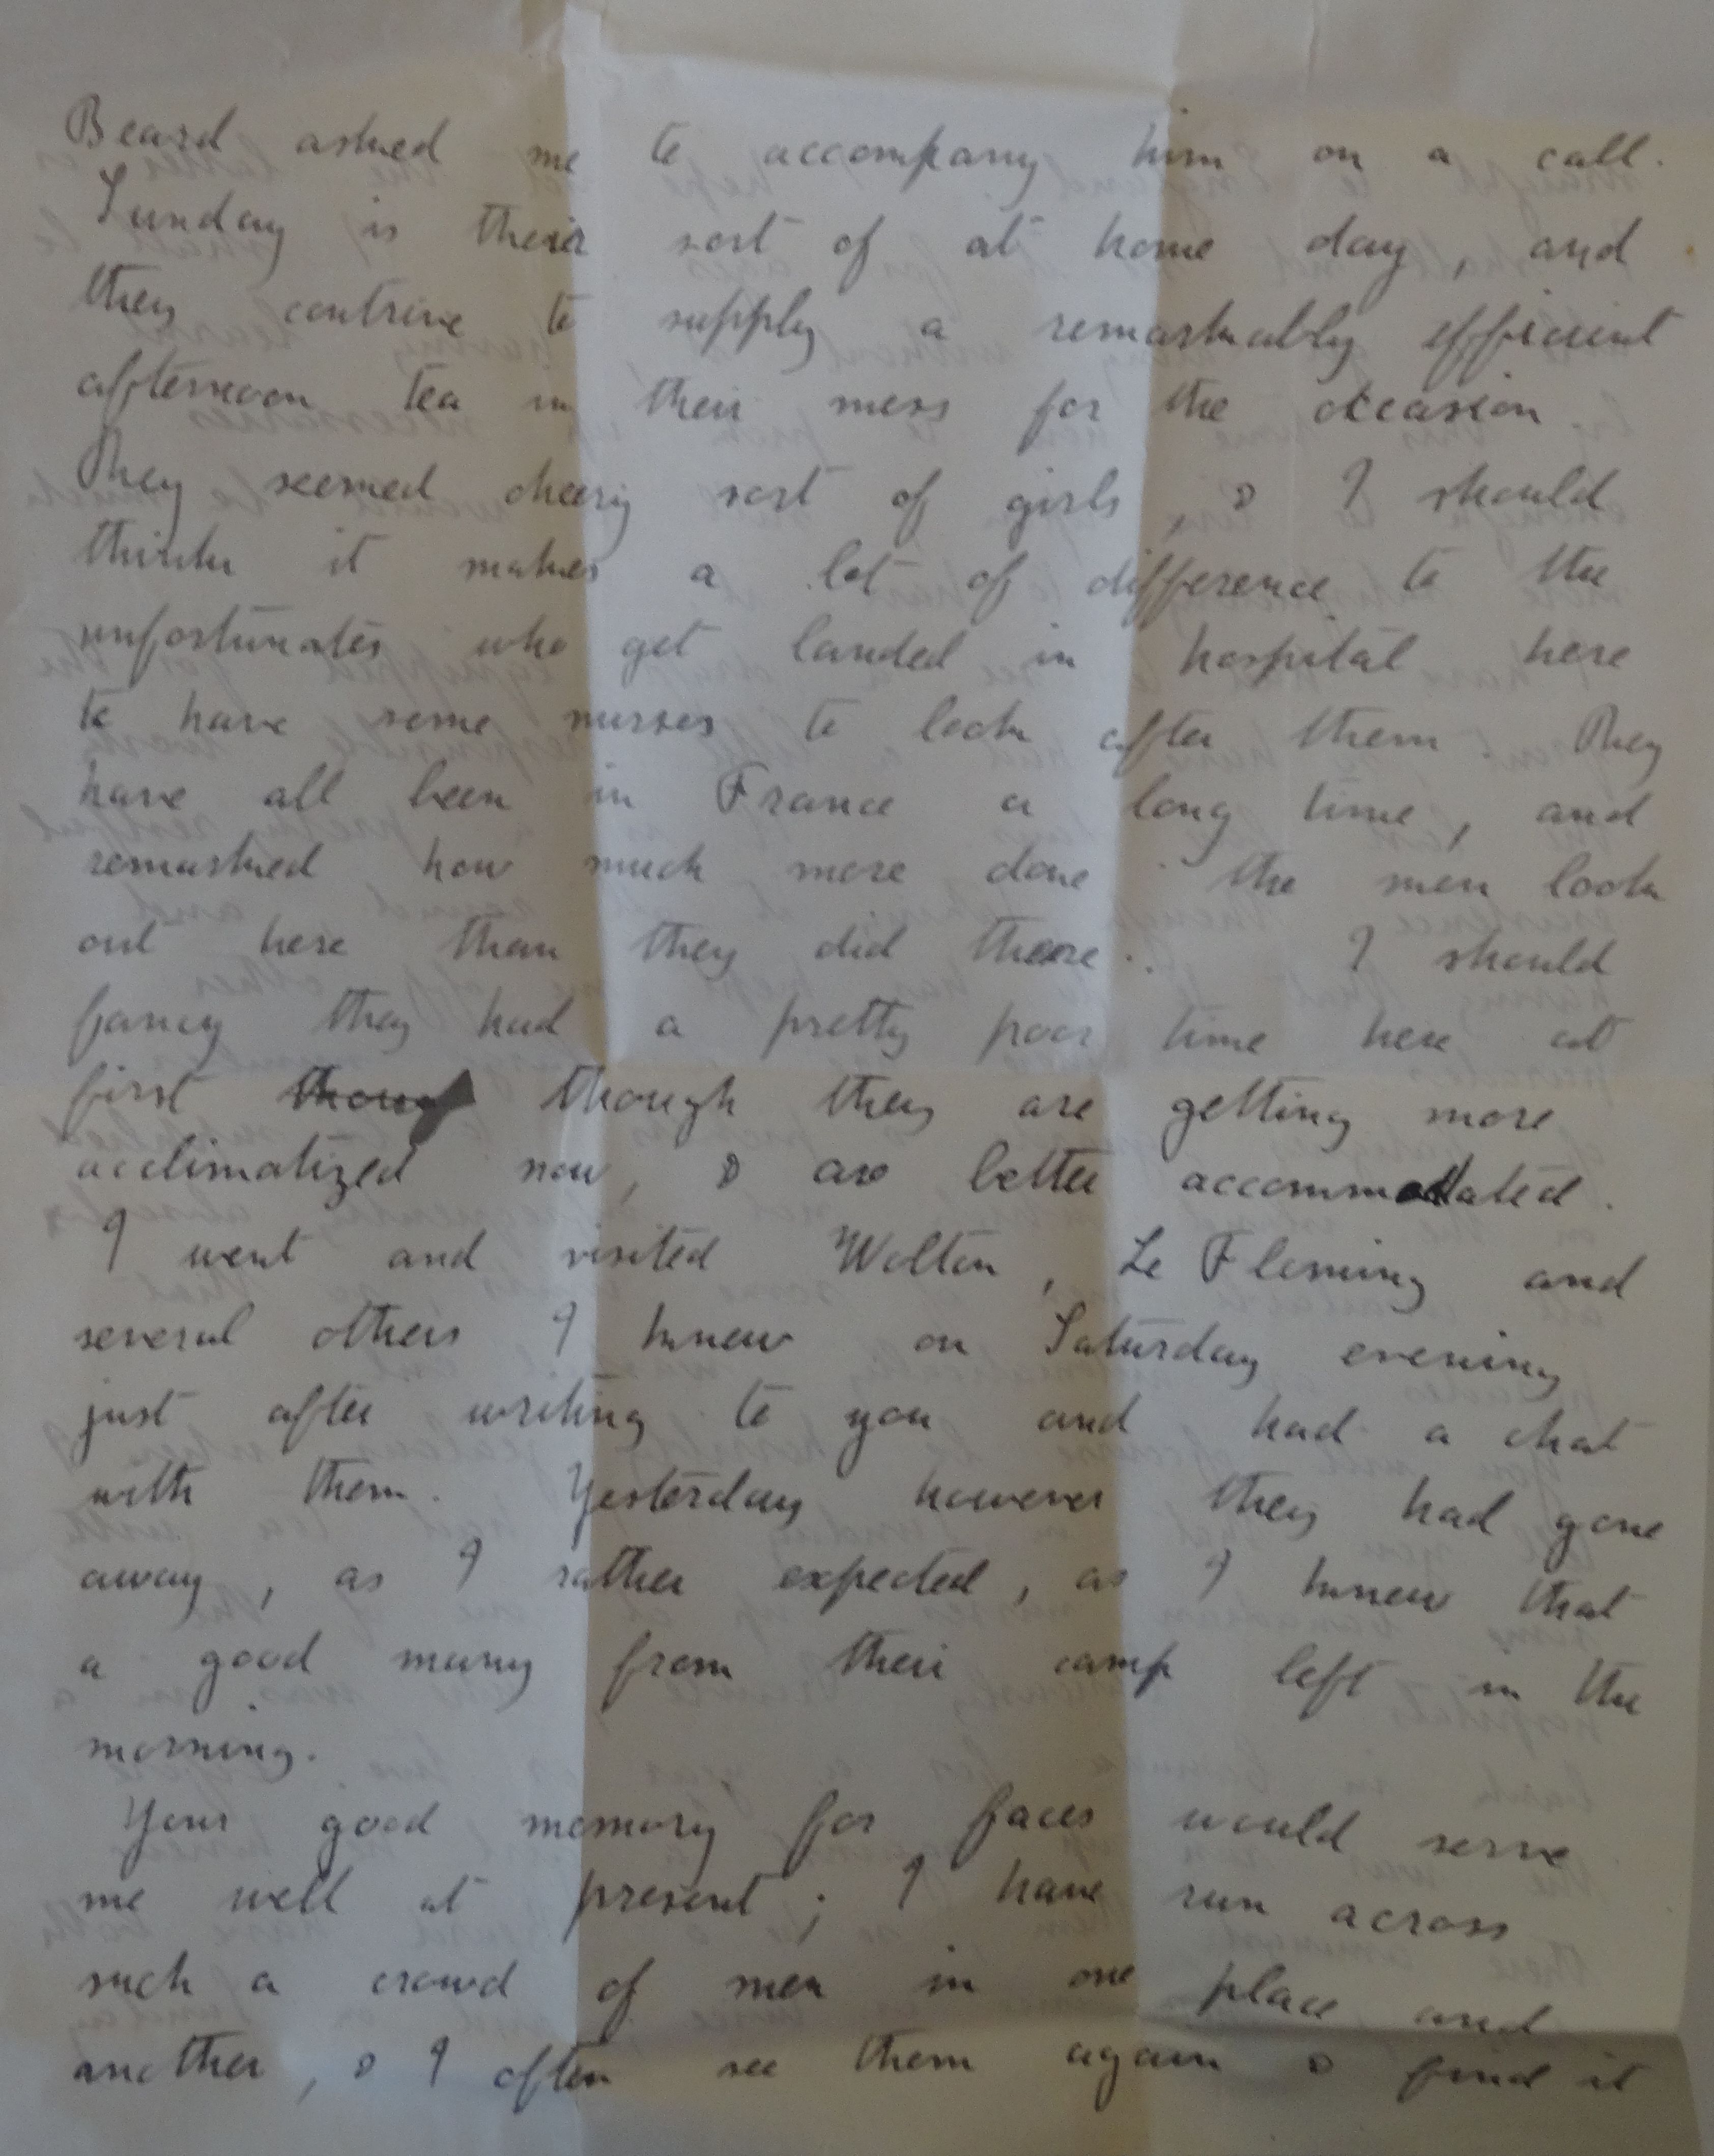 Beard asked me to accompany him on a call.
Sunday is their sort of at home day, and
they contrive to supply a remarkably efficient
afternoon tea in their mess for the occasion.
They seemed cheery sort of girls, & I should
think it makes a lot of difference to the
unfortunates who get landed in hospital here
to have some nurses to look after them They
have all been in France a long time, and
remarked how much more done the men look
out here than they did there. I should
fancy they had a pretty poor time here at
first though they are getting more
acclimatized now, & are better accommodated.
I went and visited Wolton, Le Fleming and
several others I knew on Saturday evening
just after writing to you and had a chat
with them. Yesterday however they had gone
away, as I rather expected, as I knew that
a good many from their camp left in the
morning.
Your good memory for faces would serve
me well at present; I have run across
such a crowd of men in one place and
another, & I often see them again & find it